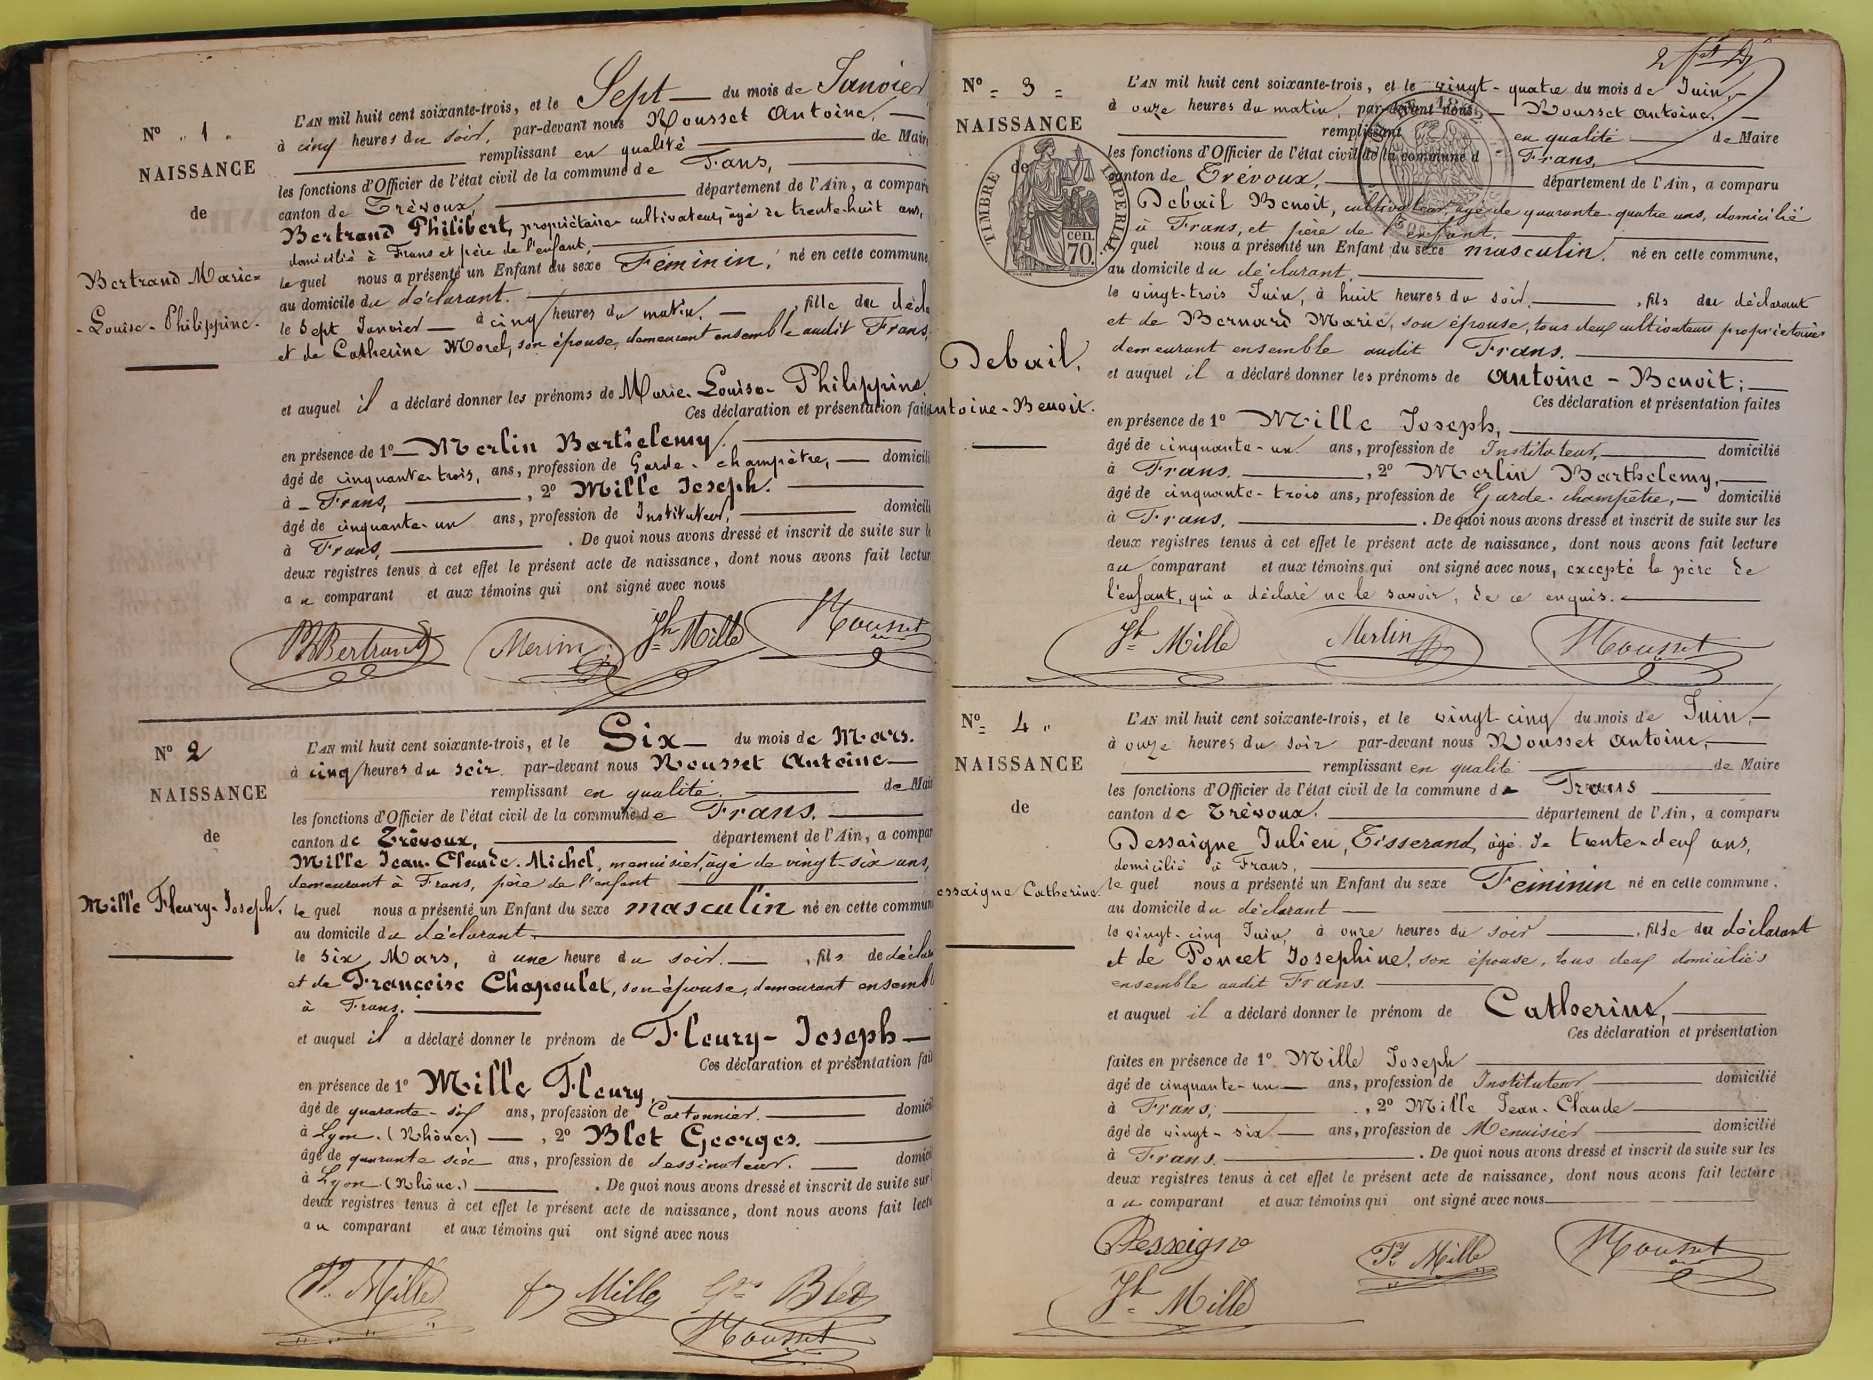 N° 1
NAISSANCE
de
Bertrand Marie-
-Louise-Philippine-
L'AN mil huit cent soixante-trois, et le Sept du mois de Janvier
à cinq heures du soir, par-devant nous Rousset Antoine,
remplissant en qualité de Maire
les fonctions d'Officier de l'état civil de la commune de Frans,
canton de Trévoux, département de l'Ain, a compar
Bertrand Philibert, propriétaire cultivateur, âgé de trente-huit ans,
domicilié à Frans et père de l'enfant,
le quel nous a présenté un Enfant du sexe Féminin, né en cette commune
au domicile du déclarant.
le Sept Janvier à cinq heures du matin, fille du décla
et de Catherine Morel, son épouse, demeurant ensemble audit Frans,
et auquel il a déclaré donner les prénoms de Marie-Louise-Philippine
Ces déclaration et présentation faite
en présence de 1° Merlin Barthelemy,
âgé de cinquante-trois, ans, profession de Garde-champêtre, domicili
à Frans, , 2° Mille Joseph.
âgé de cinquante-un ans, profession de Instituteur, domicili
à Frans, . De quoi nous avons dressé et inscrit de suite sur le
deux registres tenus à cet effet le présent acte de naissance, dont nous avons fait lectur
au comparant et aux témoins qui ont signé avec nous
Ph Bertrand Merlin Jh Mille Rousset
N° 2
NAISSANCE
de
Mille Fleury-Joseph.
L'AN mil huit cent soixante-trois, et le Six du mois de Mars.
à cinq heures du soir par-devant nous Rousset Antoine
remplissant en qualité. de Mair
les fonctions d'Officier de l'état civil de la commune de Frans.
canton de Trévoux, département de l'Ain, a compar
Mille Jean-Claude-Michel, menuisier, âgé de vingt-six ans,
demeurant à Frans, père de l'enfant
le quel nous a présenté un Enfant du sexe masculin né en cette commun
au domicile du déclarant.
le six Mars, à une heure du soir. , fils de décla
et de Françoise Chapoulet, son épouse, demeurant ensembl
à Frans.
et auquel il a déclaré donner le prénom de Fleury-Joseph
Ces déclaration et présentation fait
en présence de 1° Mille Fleury,
âgé de quarante-six ans, profession de Cartonnier. domicil
à Lyon. (Rhône.) , 2° Blet Georges.
âgé de quarante six ans, profession de dessinateur. domici
à Lyon (Rhône.) . De quoi nous avons dressé et inscrit de suite sur
deux registres tenus à cet effet le présent acte de naissance, dont nous avons fait lect
au comparant et aux témoins qui ont signé avec nous
Mille Mille Blet
Rousset
N° 3
NAISSANCE
de
TIMBRE IMPÉRIAL.
70. cen.
Debail,
Antoine-Benoit.
L'AN mil huit cent soixante-trois, et le vingt-quatre du mois de Juin,
à onze heures du matin, par-devant nous Rousset Antoine,
remplissant en qualité de Maire
les fonctions d'Officier de l'état civil de la commune d Frans,
canton de Trévoux, département de l'Ain, a comparu
Debail Benoit, cultivateur, âgé de quarante-quatre ans, domicilié
à Frans, et père de l'enfant.
quel nous a présenté un Enfant du sexe masculin. né en cette commune,
au domicile du déclarant,
le vingt-trois Juin, à huit heures du soir. , fils du déclarant
et de Bernard Marie, son épouse, tous deux cultivateurs propriétaires
demeurant ensemble audit Frans.
et auquel il a déclaré donner les prénoms de Antoine-Benoit;
Ces déclaration et présentation faites
en présence de 1° Mille Joseph,
âgé de cinquante-un ans, profession de Instituteur, domicilié
à Frans. , 2° Merlin Barthelemy,
âgé de cinquante-trois ans, profession de Garde-champêtre, domicilié
à Frans, . De quoi nous avons dressé et inscrit de suite sur les
deux registres tenus à cet effet le présent acte de naissance, dont nous avons fait lecture
au comparant et aux témoins qui ont signé avec nous, excepté le père de
l'enfant, qui a déclaré ne le savoir, de ce enquis.
Jh Mille Merlin Rousset
N° 4
NAISSANCE
de
essaigne Catherine.
L'AN mil huit cent soixante-trois, et le vingt-cinq du mois de Juin,
à onze heures du soir par-devant nous Rousset Antoine,
remplissant en qualité de Maire
les fonctions d'Officier de l'état civil de la commune de Frans
canton de Trévoux. département de l'Ain, a comparu
Dessaigne Julien, Tisserand, âgé de trente-deux ans,
domicilié à Frans,
le quel nous a présenté un Enfant du sexe Féminin né en cette commune,
au domicile du déclarant
le vingt-cinq Juin, à onze heures du soir , fille du déclarant
et de Poncet Josephine, son épouse, tous deux domiciliés
ensemble audit Frans.
et auquel il a déclaré donner le prénom de Catherine,
Ces déclaration et présentation
faites en présence de 1° Mille Joseph
âgé de cinquante-un ans, profession de Instituteur domicilié
à Frans, , 2° Mille Jean-Claude
âgé de vingt-six ans, profession de Menuisier domicilié
à Frans. . De quoi nous avons dressé et inscrit de suite sur les
deux registres tenus à cet effet le présent acte de naissance, dont nous avons fait lecture
au comparant et aux témoins qui ont signé avec nous
Dessaigne Mille Rousset
Jh Mille